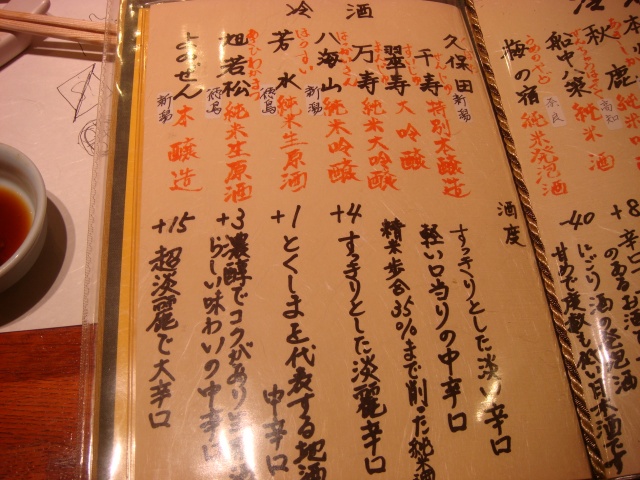 冷
秋鹿
純米酒
船中八策
高知
純米酒
+8
のあるお酒
梅の宿
奈良
純米発泡酒
-40
にごり酒の発泡酒
甘めで度数も低い日本酒です
冷酒
酒度
久保田
新潟
千寿
特別本醸造
すっきりとした淡い辛口
翠寿
大吟醸
軽い口当りの中辛口
万寿
純米大吟醸
精米歩合35%まで削った純米酒
八海山
新潟
純米吟醸
+4
すっきりとした淡麗辛口
芳水
徳島
純米生原酒
+1
とくしまを代表する地酒
中辛口
旭若松
徳島
純米生原酒
+3
濃醇でコクがあり
らしい味わいの中辛口
新潟
本醸造
+15
超淡麗で大辛口